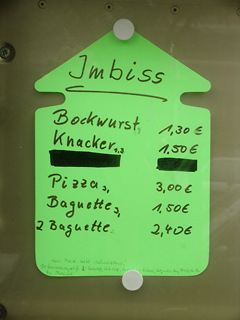 Imbiss
Bockwurst, 1,30 €
Knacker 1,3 1,50 €
Pizza 3, 3,00 €
Baguette 3, 1,50 €
2 Baguette 2,40 €